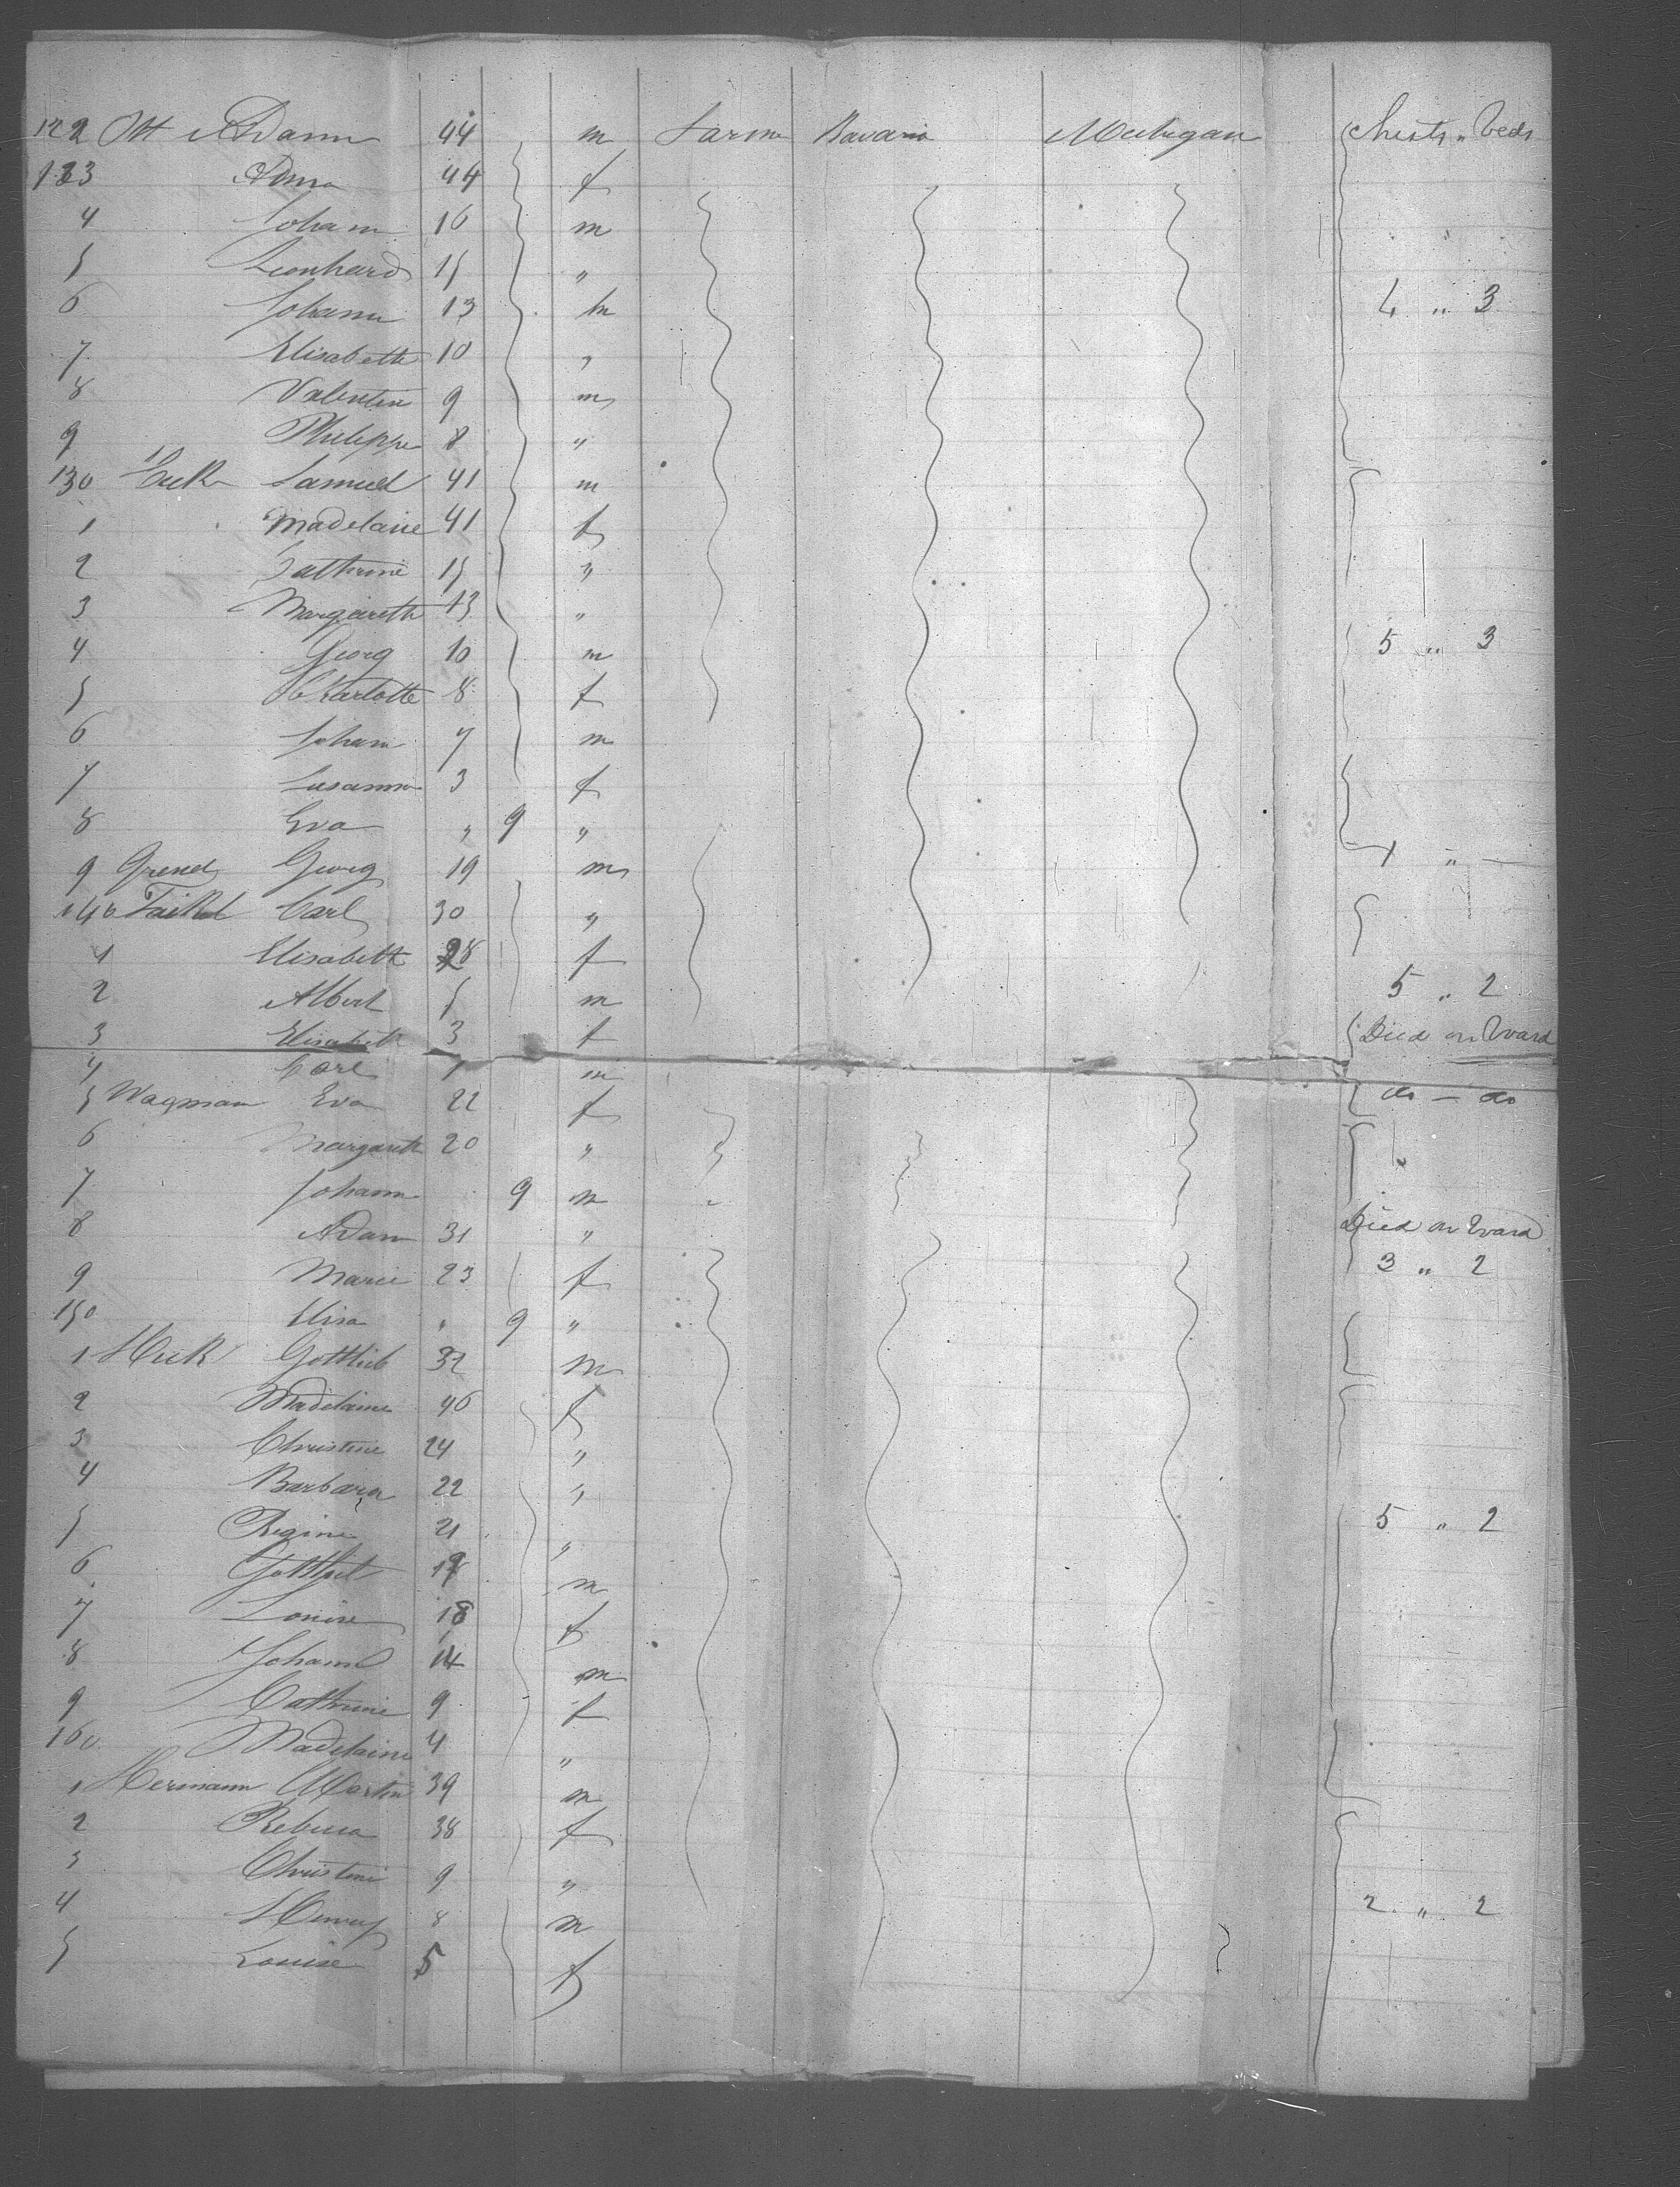 122 Ott Adam 44 m Farm Bavaria Michigan Chests " Beds
123 Anna 44 f
4 Johann 16 m
5 Leonhard 15 "
6 Johann 13 m 4 " 3
7 Elisabeth 10 "
8 Valentin 9 m
9 Philippe 8 "
130 Samuel 41 m
1 Madelaine 41 f
2 Cathrine 15 "
3 Margareth 13 "
4 Georg 10 m 5 " 3
5 Charlotte 8 f
6 Johann 7 m
7 Susanna 3 f
8 Eva " 9 "
9 Georg 19 m 1 " —
140 Carl 30 "
1 Elisabeth 28 f
2 Albert 5 m 5 " 2
3 Elisabeth 3 f Died on Board
4 Carl 1 m
5 Wagman Eva 22 f do — do
6 Margareth 20 "
7 Johann 9 m
8 Adam 31 " Died on Board
9 Marie 23 f 3 " 2
150 Elisa " 9 "
1 Gottlieb 32 m
2 Madelaine 46 f
3 Christine 24 "
4 Barbara 22 "
5 Regine 21 " 5 " 2
6 Gottlieb 19 m
7 Louise 18 f
8 Johann 14 m
9 Cathrine 9 f
160 Madelaine 4 "
1 Hermann Martin 39 m
2 Rebecca 38 f
3 Christine 9 "
4 Henry 8 m 2 " 2
5 Louise 5 f